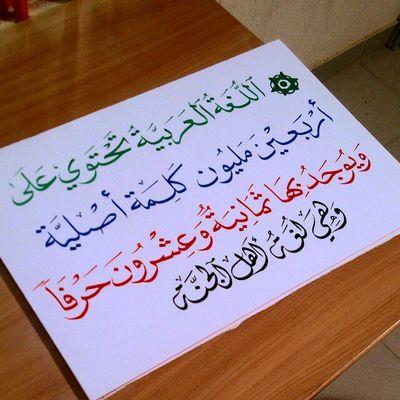 اَللُّغَةُ الْعَرَبِيَّةُ تَحْتَوِي عَلَى
أَرْبَعِيْنَ مَلْيُون كَلِمَة أَصْلِيَّة
وَيُوجَدُ بِهَا ثَمَانِيَةُ وَعِشْرُونَ حَرْفَاً
وَهِيَ لُغَةُ أَهْلِ الْجَنَّة